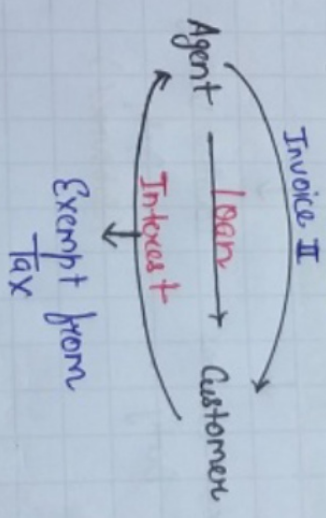 Invoice II
Agent
Loan
Customer
Interest
Exempt from
Tax